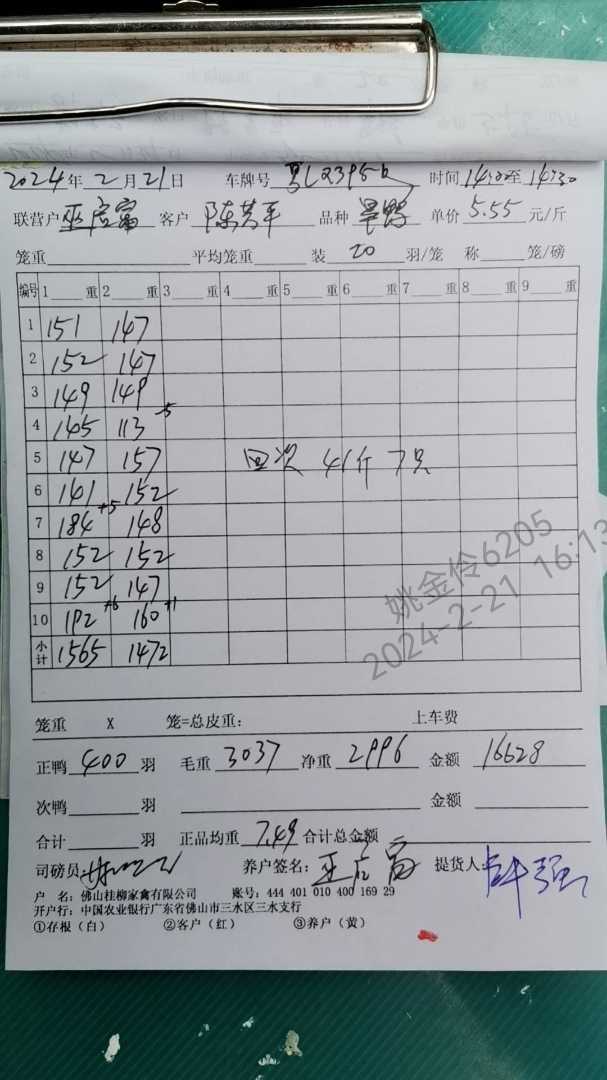 2024年2月21日 车牌号 粤L2395b 时间14:00至14:30
联营户巫启富 客户 陈芳平 品种 旱鸭 单价 5.55 元/斤
笼重 平均笼重 装 20 羽/笼 称 笼/磅
编号 1 重 2 重 3 重 4 重 5 重 6 重 7 重 8 重 9 重
1 151 147
2 152 147
3 149 149
4 145 113 -5
5 147 157 回次 41斤 7只
6 141 152
7 184 +5 148
8 152 152
9 152 147
10 192 +6 160 +1
小计 1565 1472
笼重 X 笼=总皮重: 上车费
正鸭 400 羽 毛重 3037 净重 2996 金额 16628
次鸭 羽 金额
合计 羽 正品均重 7.49 合计总金额
司磅员 养户签名: 巫启富 提货人:
户 名: 佛山桂柳家禽有限公司 账号: 444 401 010 400 169 29
开户行: 中国农业银行广东省佛山市三水区三水支行
①存根（白） ②客户（红） ③养户（黄）
姚金伶6205
2024-2-21 16:13